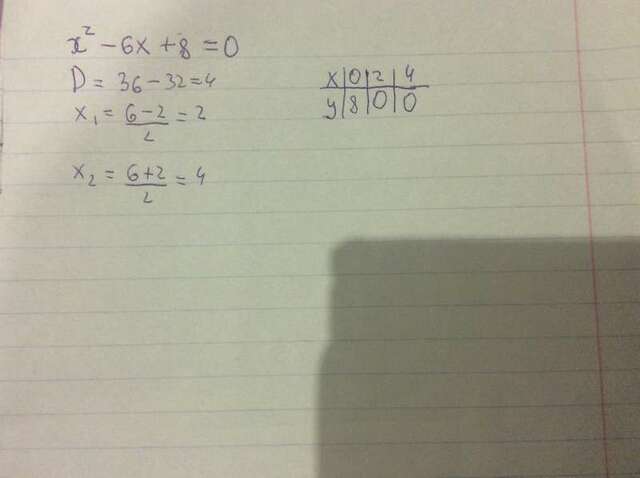 x² - 6x + 8 = 0
D = 36 - 32 = 4
x₁ = (6 - 2)/2 = 2
x₂ = (6 + 2)/2 = 4
x | 0 | 2 | 4
y | 8 | 0 | 0